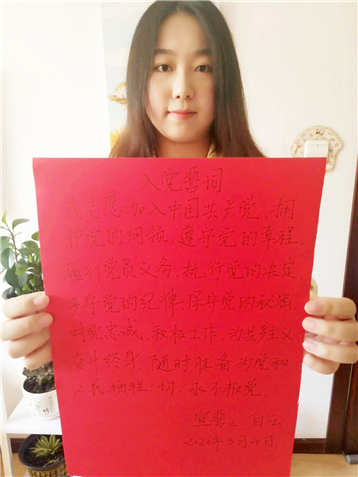 入党誓词
我志愿加入中国共产党,拥
护党的纲领,遵守党的章程,
履行党员义务,执行党的决定,
严守党的纪律,保守党的秘密,
对党忠诚,积极工作,为共产主义
奋斗终身,随时准备为党和
人民牺牲一切,永不叛党。
宣誓人:白云
2020年3月4日